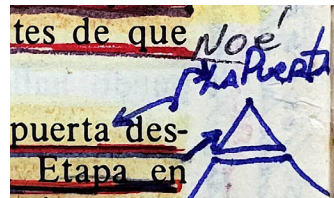 tes de que
Noé
La Puerta
puerta des-
Etapa en